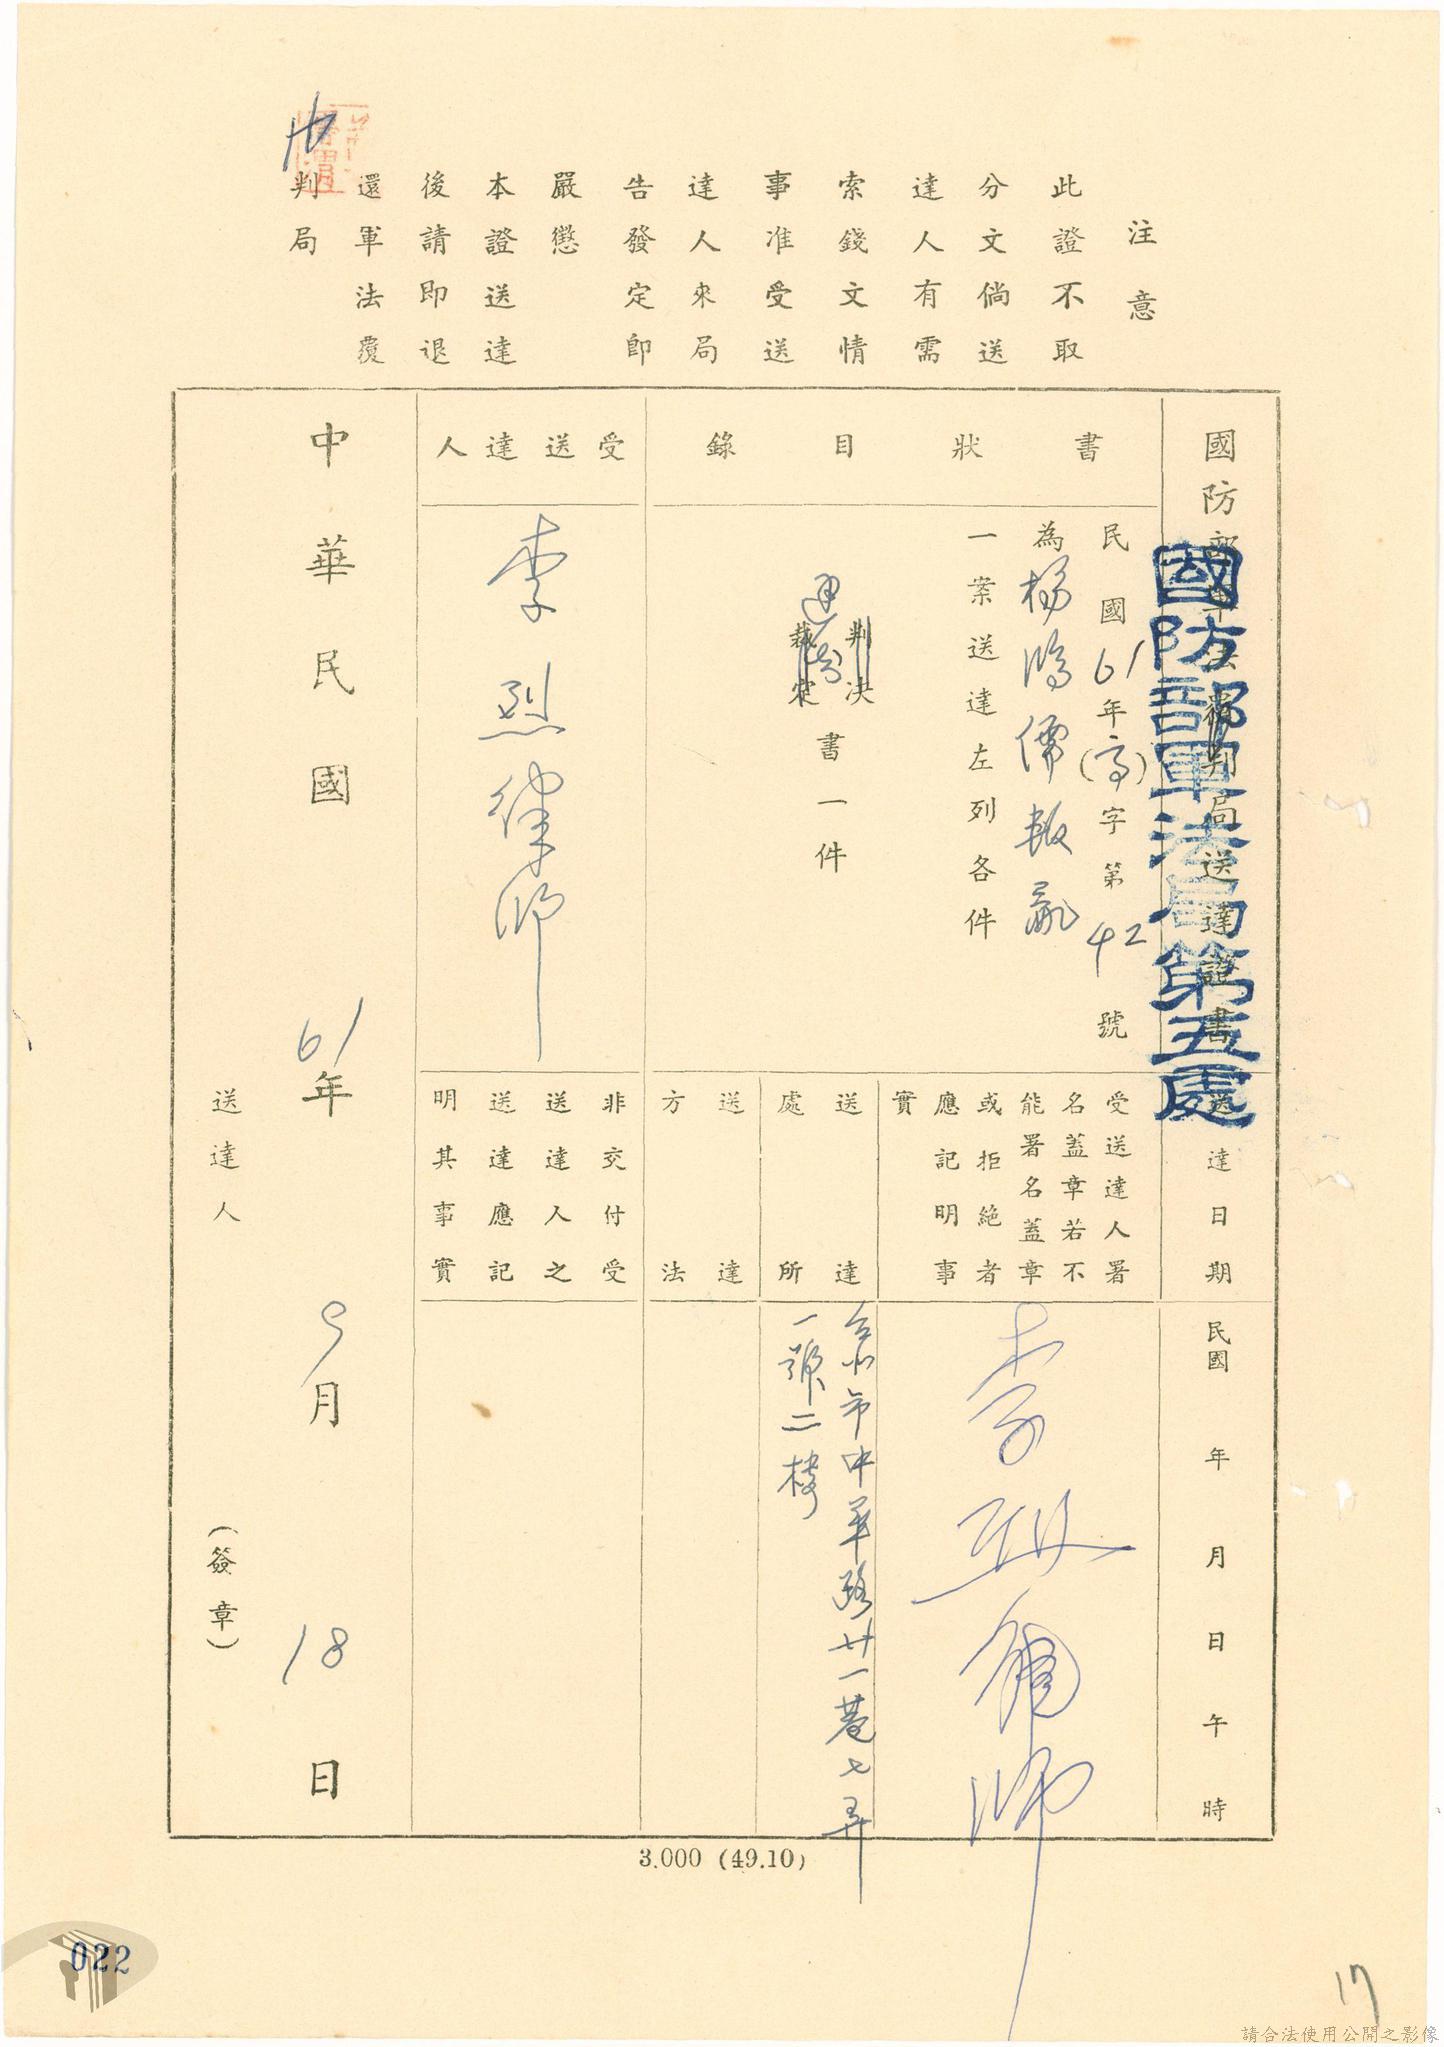 注意
此證不取
分文倘送
達人有需
索錢文情
事准受送
達人來局
告發定即
嚴懲
本證送達
後請即退
還軍法覆
判局
國防部軍法覆判局送達證書
國防部軍法局第五處
書狀目錄
民國61年(高)字第42號
為楊鴻儒叛亂
一案送達左列各件
判決
裁定
書一件
受送達人
李烈律師
送達日期
民國 年 月 日 午 時
受送達人署
名蓋章若不
能署名蓋章
或拒絕者
應記明事
實
李 律師
送達
處所
台北市中華路廿一巷七弄
一號二樓
送達
方法
非交付受
送達人之
送達應記
明其事實
中華民國61年9月18日
送達人
(簽章)
3.000 (49.10)
022
17
請合法使用公開之影像